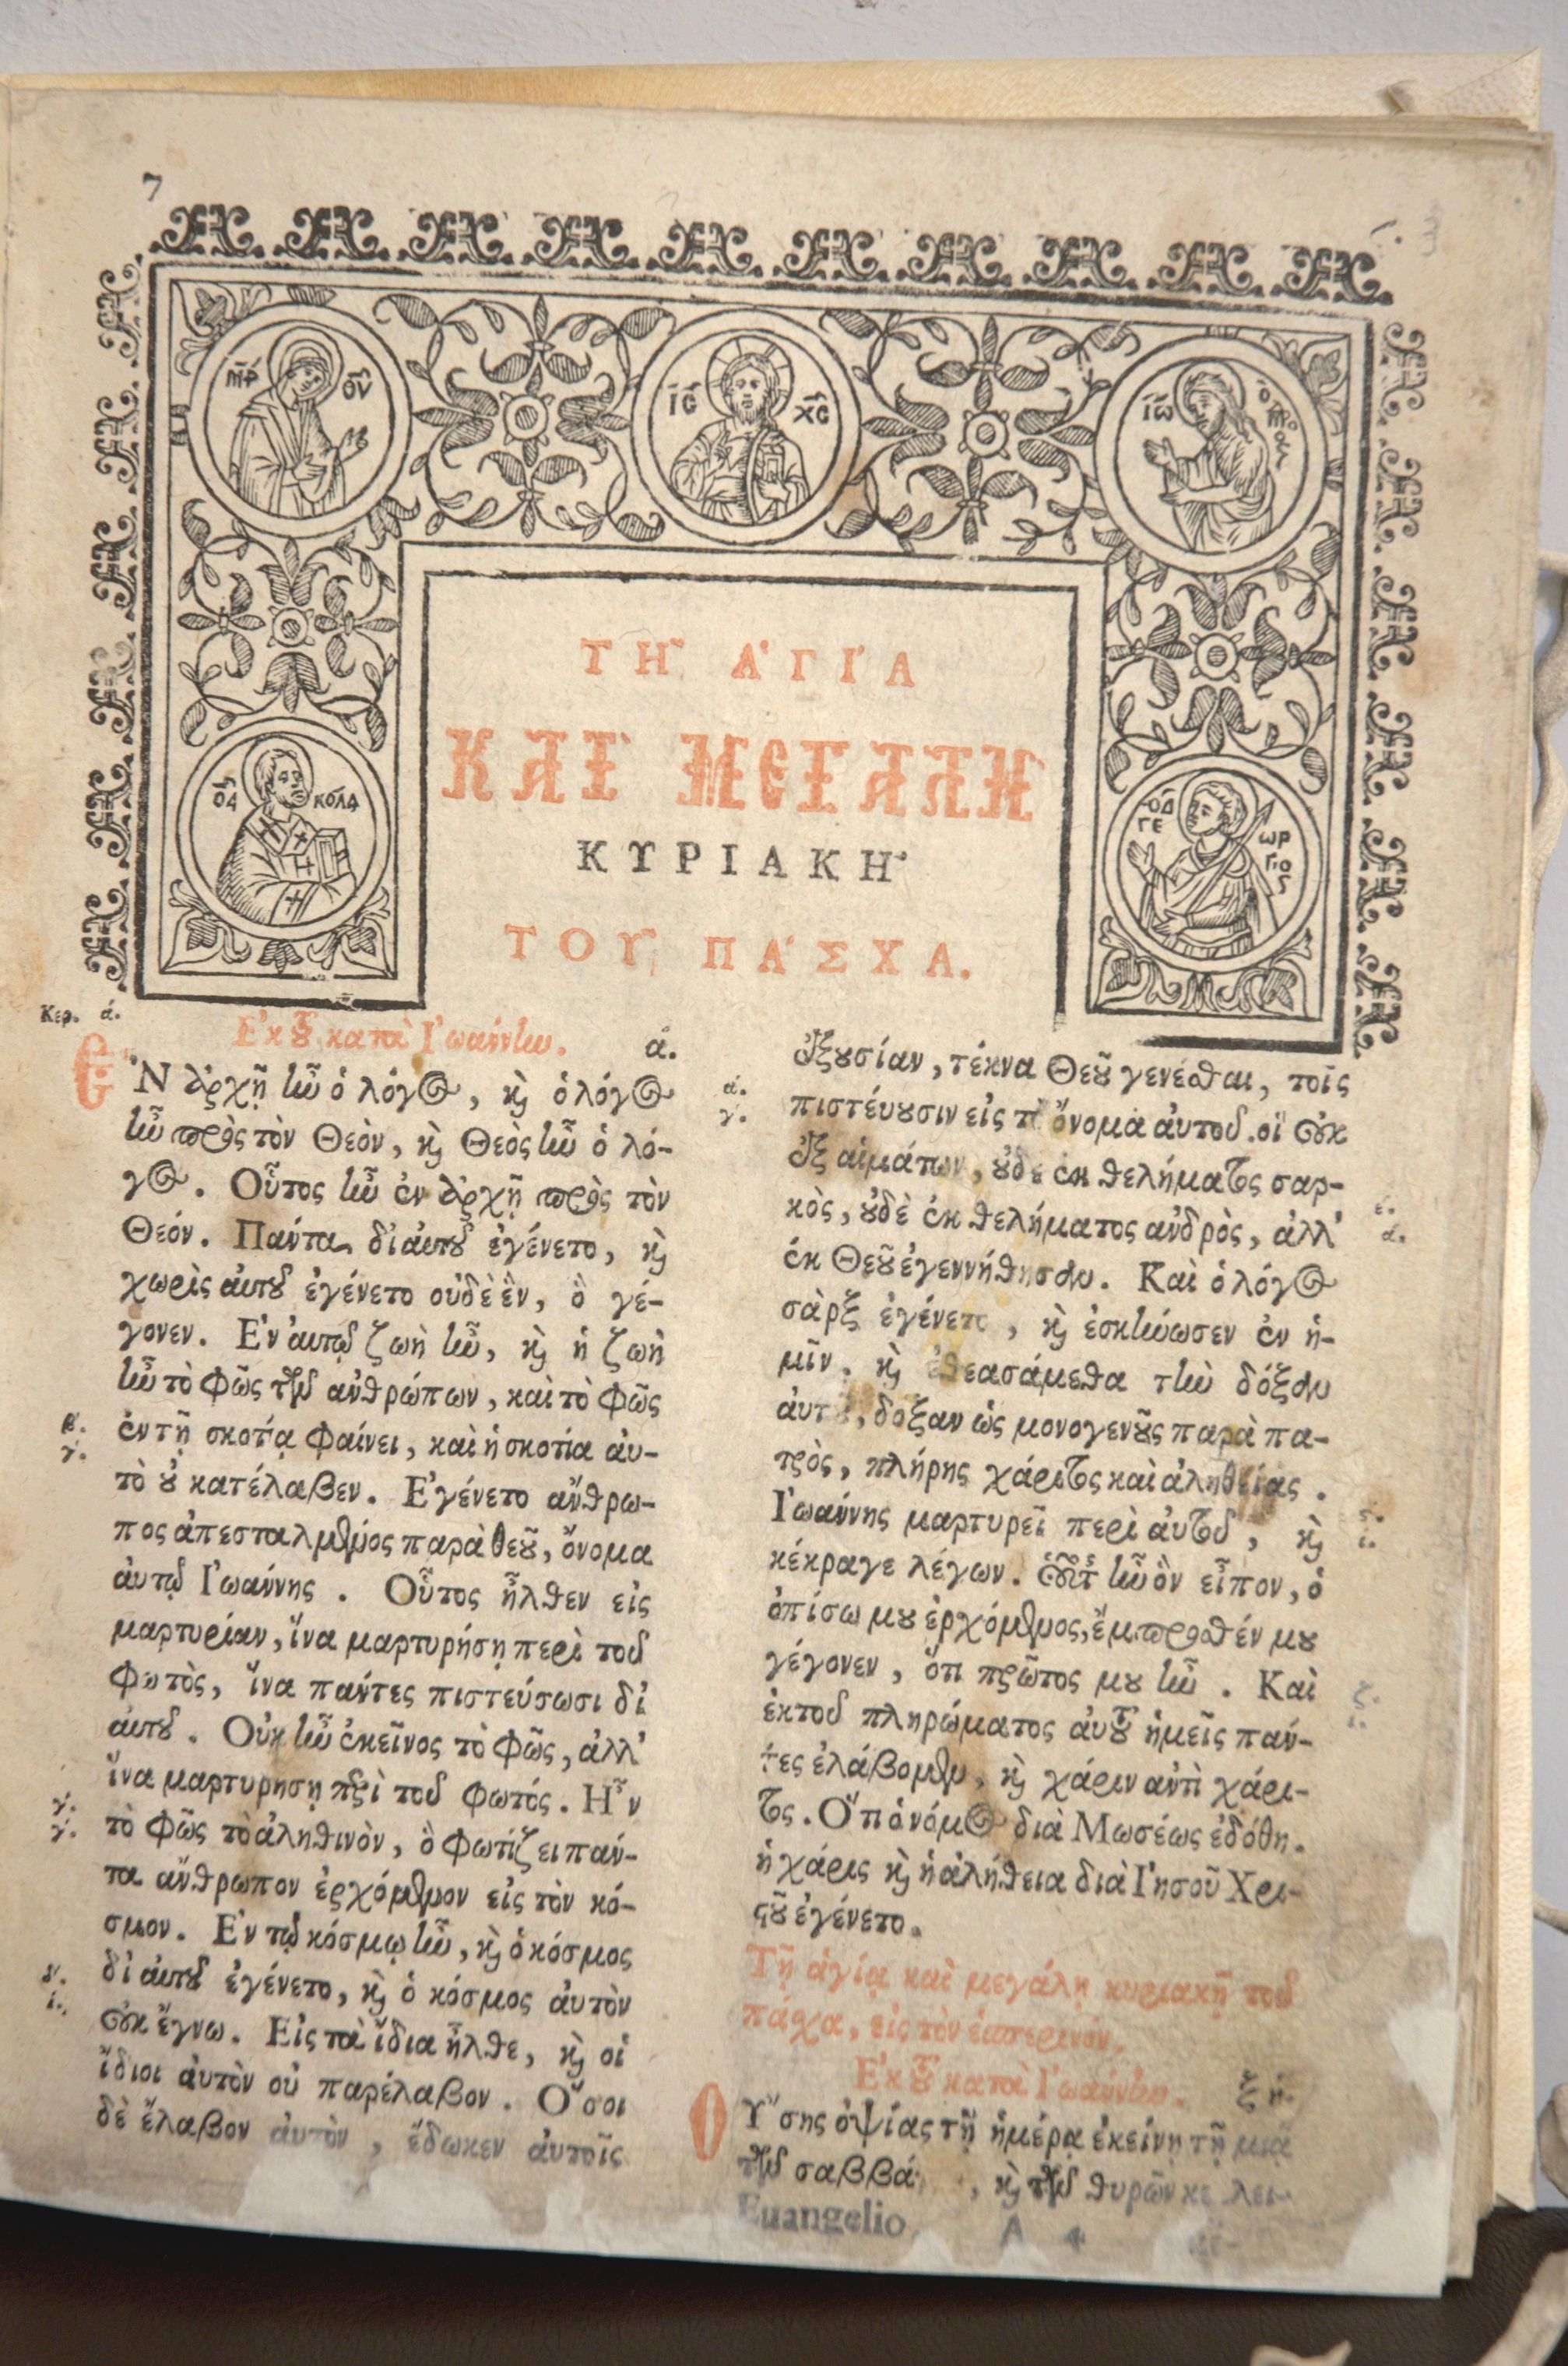 7
ΜΡ ΘΥ
ΙС ΧС
ΙΩ
ΤΗ͂ ἉΓΊΑ
ΚΑῚ ΜΕΓΆΛΗ
ΚΥΡΙΑΚΗ͂
ΤΟΥ͂ ΠΆΣΧΑ.
Κεφ. ά.
Ἐκ τοῦ κατὰ Ἰωάννην. ά.
ἘΝ ἀρχῇ ἦν ὁ λόγος, καὶ ὁ λόγος
ἦν πρὸς τὸν Θεὸν, καὶ Θεὸς ἦν ὁ λό-
γος. Οὗτος ἦν ἐν ἀρχῇ πρὸς τὸν
Θεόν. Πάντα δἰ αὐτοῦ ἐγένετο, καὶ
χωρὶς αὐτοῦ ἐγένετο οὐδὲ ἓν, ὃ γέ-
γονεν. Ἐν ἀυτῷ ζωὴ ἦν, καὶ ἡ ζωὴ
ἦν τὸ Φῶς τῶν ἀνθρώπων, καὶ τὸ Φῶς
ἐν τῇ σκοτίᾳ Φαίνει, καὶ ἡ σκοτία ἀυ-
τὸ οὐ κατέλαβεν. Ἐγένετο ἄνθρω-
πος ἀπεσταλμένος παρὰ θεοῦ, ὄνομα
ἀυτῷ Ἰωάννης. Οὗτος ἦλθεν εἰς
μαρτυρίαν, ἵνα μαρτυρήσῃ περὶ τοῦ
Φωτὸς, ἵνα πάντες πιστεύσωσι δἰ
ἀυτοῦ. Οὐκ ἦν ἐκεῖνος τὸ Φῶς, ἀλλ'
ἵνα μαρτυρησῃ περὶ τοῦ Φωτός. Ἦν
τὸ Φῶς τὸ ἀληθινὸν, ὃ Φωτίζει πάν-
τα ἄνθρωπον ἐρχόμενον εἰς τὸν κό-
σμον. Ἐν τῷ κόσμῳ ἦν, καὶ ὁ κόσμος
δἰ ἀυτοῦ ἐγένετο, καὶ ὁ κόσμος ἀυτὸν
οὐκ ἔγνω. Εἰς τὰ ἴδια ἦλθε, καὶ οἱ
ἴδιοι ἀυτὸν οὐ παρέλαβον. Ὅσοι
δὲ ἔλαβον ἀυτὸν, ἔδωκεν ἀυτοῖς
ἐξουσίαν, τέκνα Θεοῦ γενέσθαι, τοῖς
πιστέυουσιν εἰς τὸ ὄνομα ἀυτοῦ. οἳ οὐκ
ἐξ αἱμάτων, οὐδὲ ἐκ θελήματος σαρ-
κὸς, οὐδὲ ἐκ θελήματος ἀνδρὸς, ἀλλ'
ἐκ Θεοῦ ἐγεννήθησαν. Καὶ ὁ λόγος
σὰρξ ἐγένετο, καὶ ἐσκήνωσεν ἐν ἡ-
μῖν. καὶ ἐθεασάμεθα τὴν δόξαν
ἀυτοῦ, δόξαν ὡς μονογενοῦς παρὰ πα-
τρὸς, πλήρης χάριτος καὶ ἀληθείας.
Ἰωάννης μαρτυρεῖ περὶ ἀυτοῦ, καὶ
κέκραγε λέγων. Οὗτος ἦν ὃν εἶπον, ὁ
ὀπίσω μου ἐρχόμενος, ἔμπροσθέν μου
γέγονεν, ὅτι πρῶτος μου ἦν. Καὶ
ἐκ τοῦ πληρώματος ἀυτοῦ ἡμεῖς πάν-
τες ἐλάβομεν, καὶ χάριν ἀντὶ χάρι-
τος. Ὅτι ὁ νόμος διὰ Μωσέως ἐδόθη.
ἡ χάρις καὶ ἡ ἀλήθεια διὰ Ἰησοῦ Χρι-
στοῦ ἐγένετο.
Τῇ ἁγίᾳ καὶ μεγάλῃ κυριακῇ τοῦ
πάσχα, εἰς τὸν ἑσπερινόν.
Ἐκ τοῦ κατὰ Ἰωάννην. ξή.
ΟΥ̓́σης ὀψίας τῇ ἡμέρᾳ ἐκείνῃ τῇ μιᾷ
τῶν σαββά , καὶ τῶν θυρῶν κε λει-
Euangelio. A 4